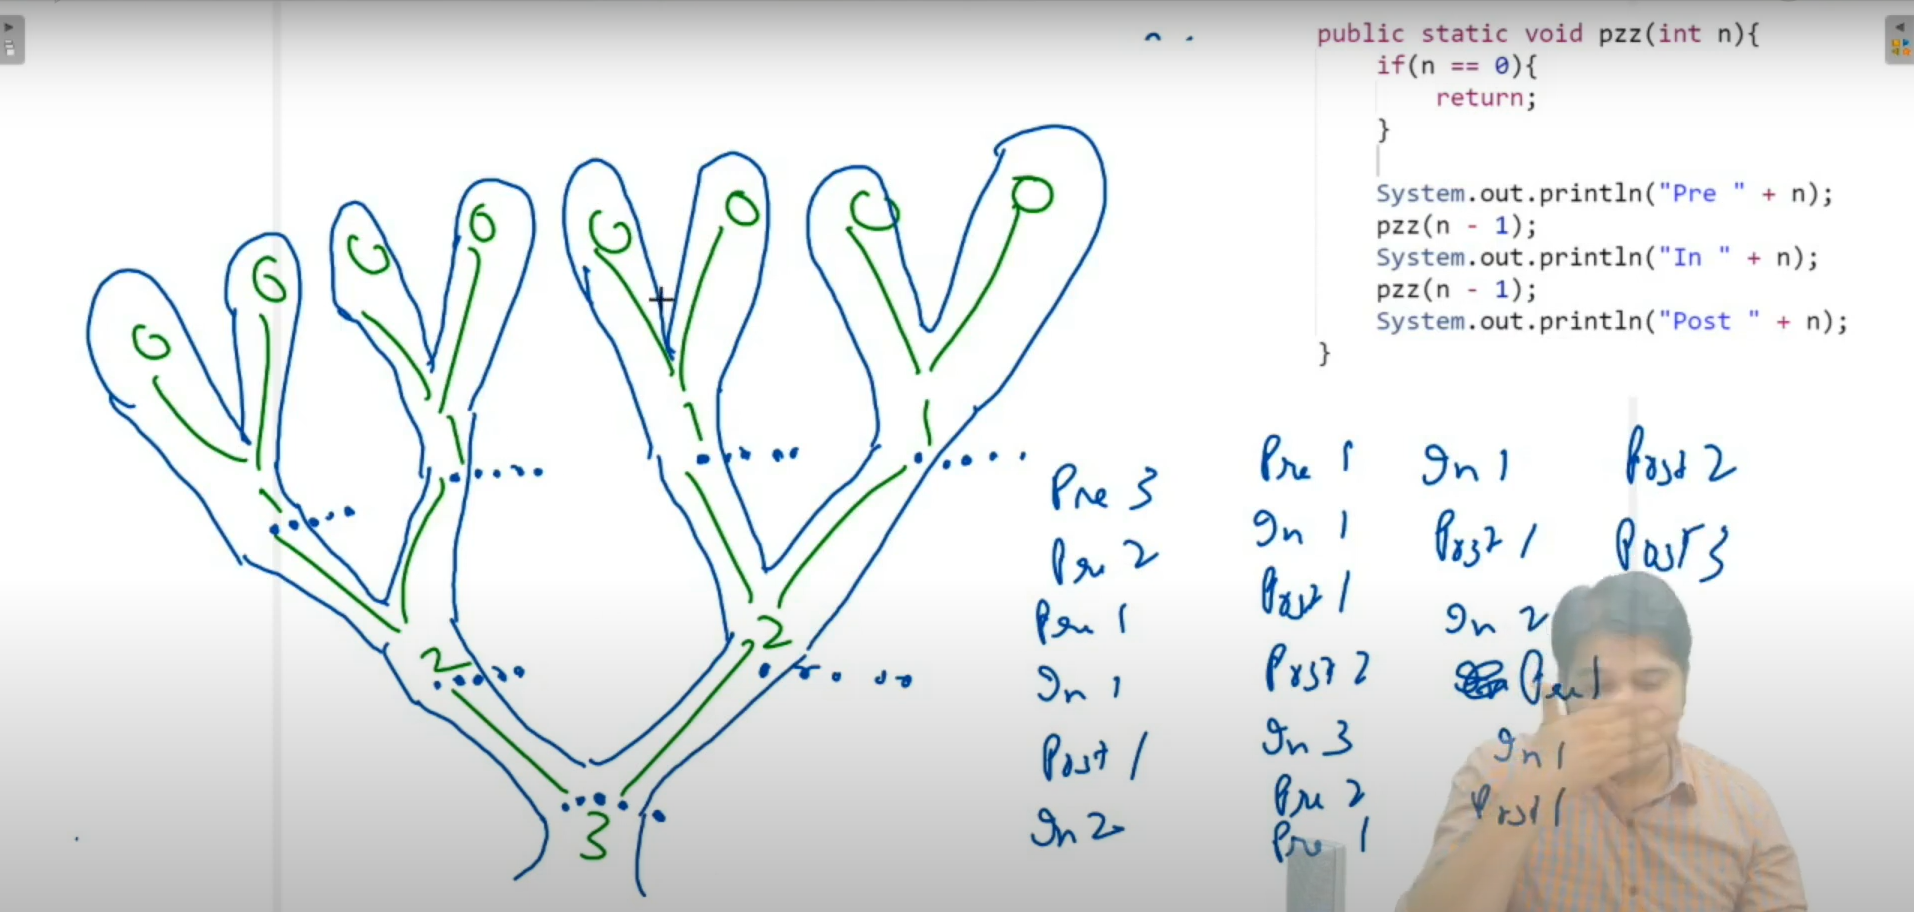 public static void pzz(int n){
if(n == 0){
return;
}
System.out.println("Pre " + n);
pzz(n - 1);
System.out.println("In " + n);
pzz(n - 1);
System.out.println("Post " + n);
}
0
0
0
0
0
0
0
0
1
1
1
1
2
2
3
Pre 3
Pre 2
Pre 1
In 1
Post 1
In 2
Pre 1
In 1
Post 1
Post 2
In 3
Pre 2
Pre 1
In 1
Post 1
In 2
Pre 1
In 1
Post 1
Post 2
Post 3